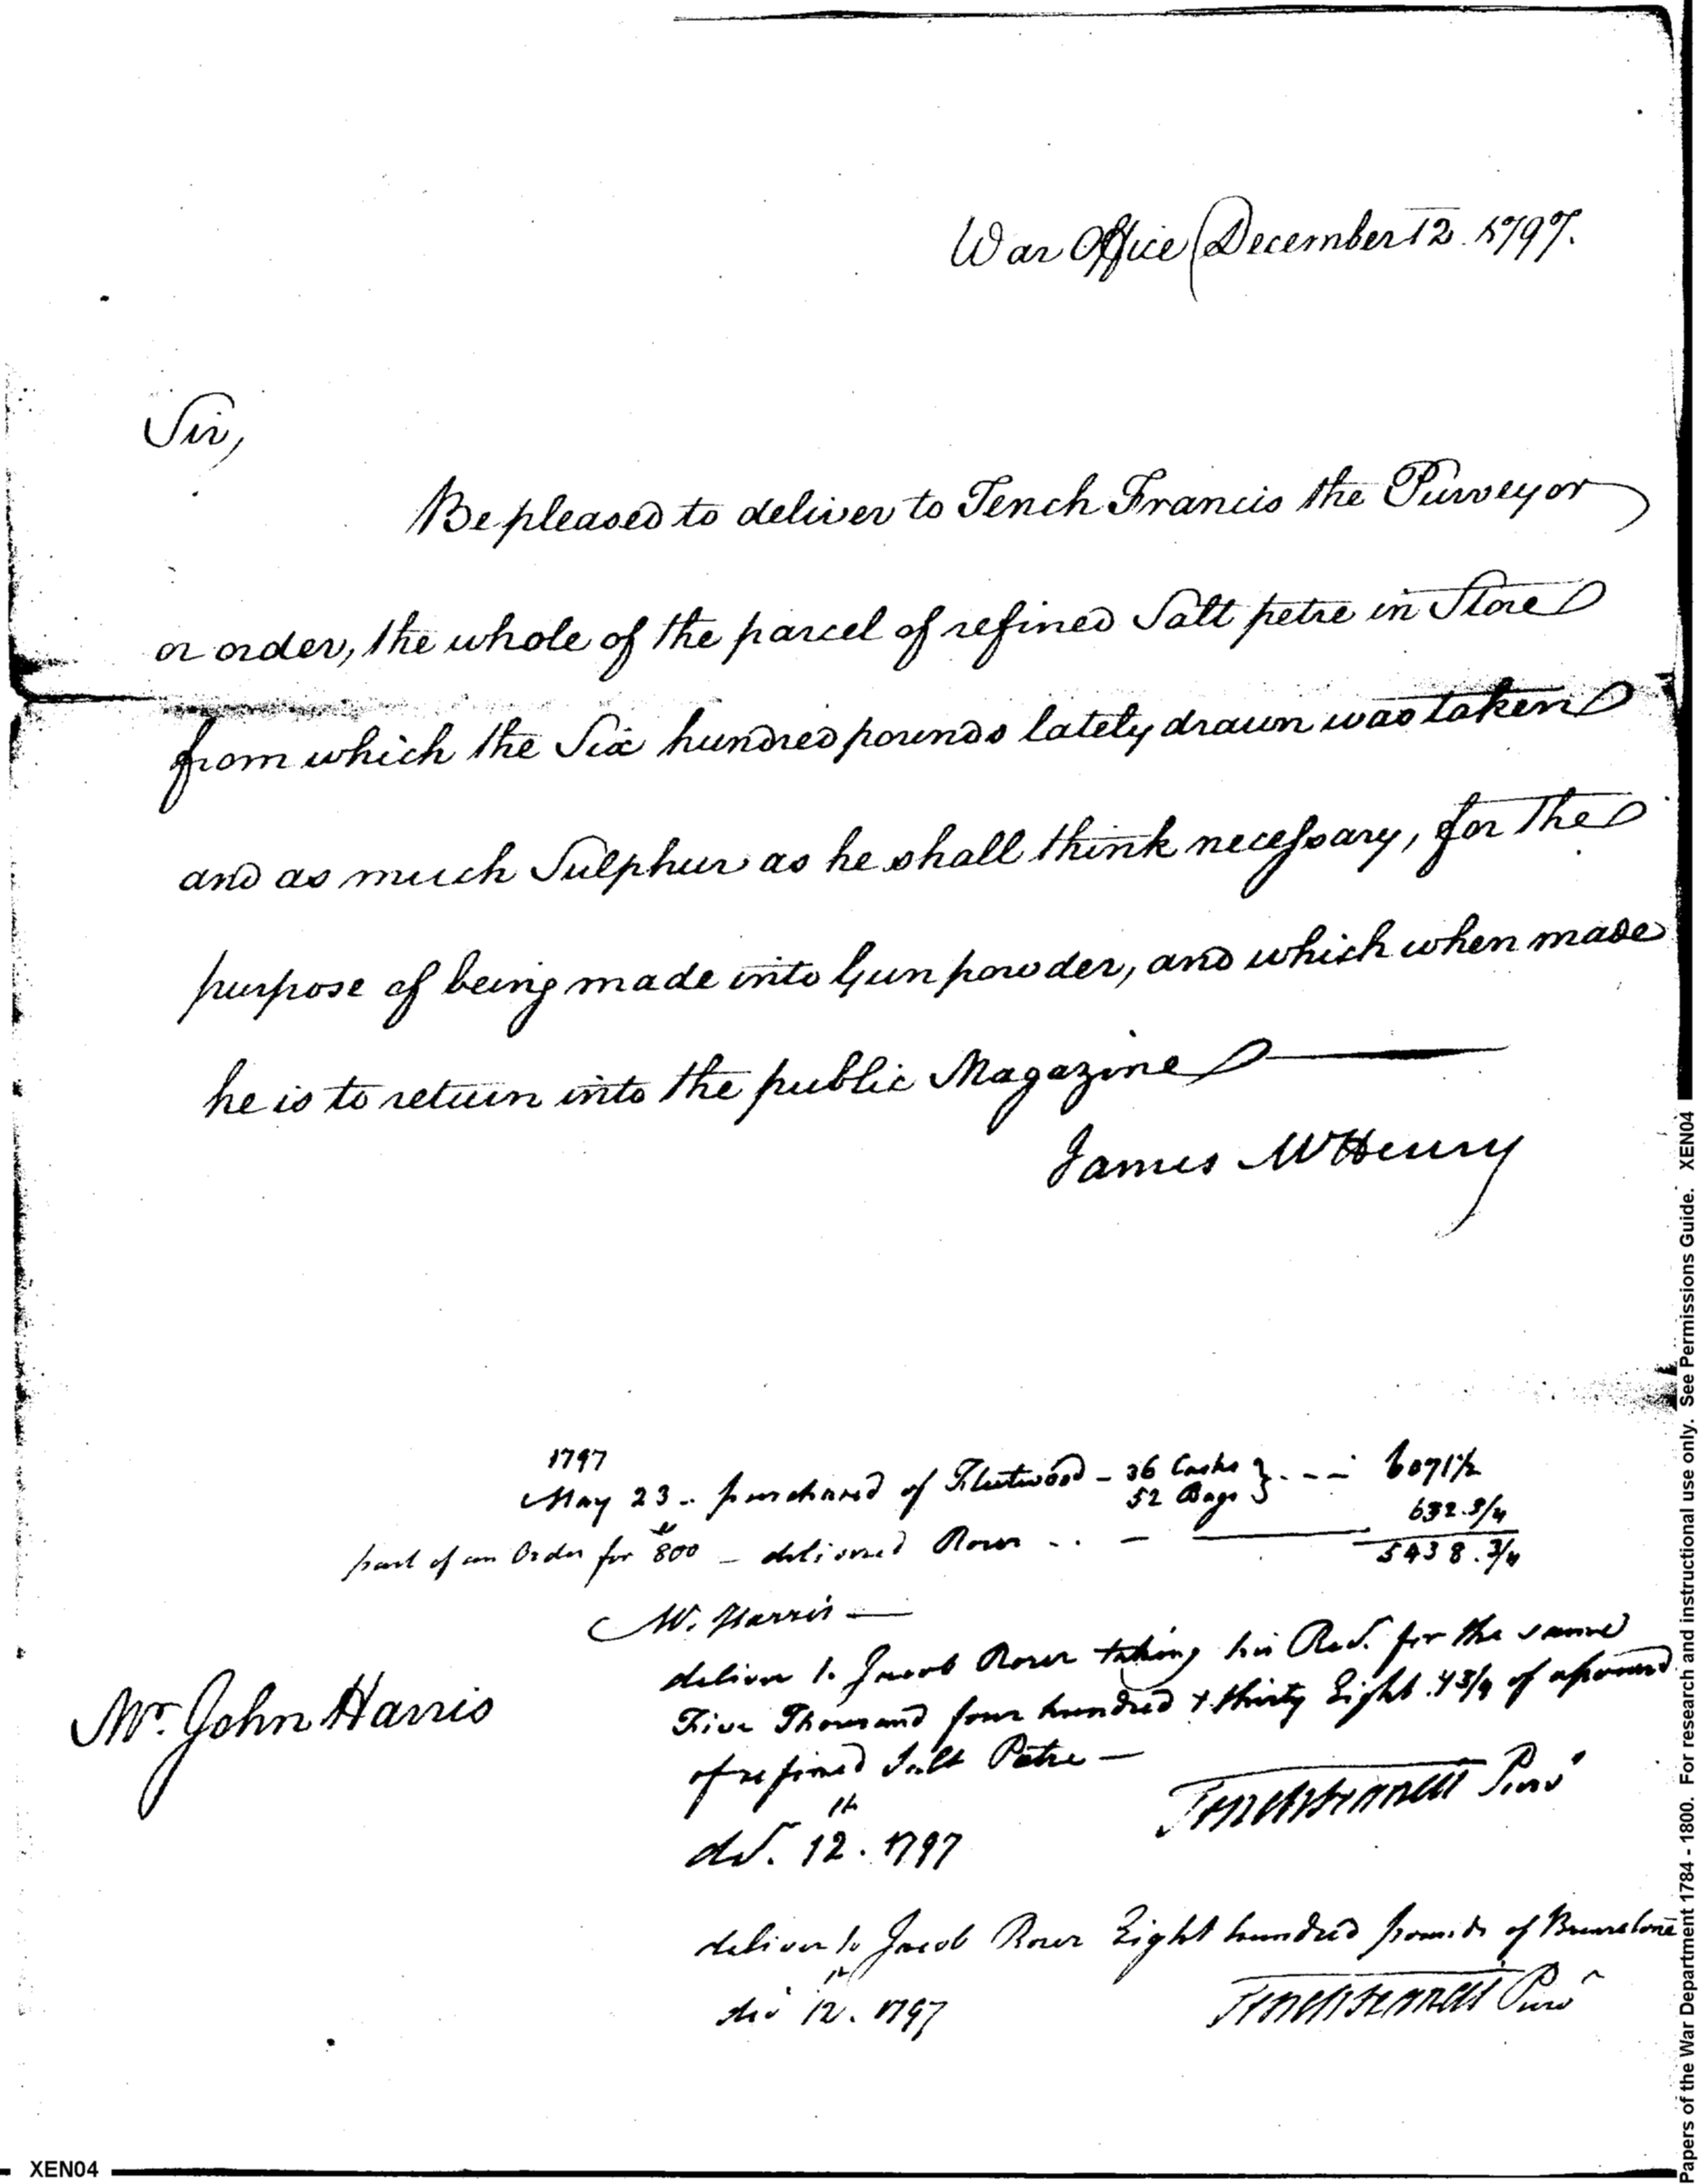 War Office December 12. 1797.
Sir,
Be pleased to deliver to Tench Francis the Purveyor
or order, the whole of the parcel of refined Salt petre in Store
from which the Six hundred pounds lately drawn was taken
and as much Sulphur as he shall think necessary, for the
purpose of being made into Gun powder, and which when made
he is to return into the public Magazine
James McHenry
1797
May 23 - purchased of Fleetwood - 36 Casks } - - - 6071 1/2
52 Bags
632.3/4
part of an Order for 800 - delivered Rower . . -
5438.3/4
Mr. Harris -
deliver to Jacob Rower taking his Rect. for the same
Five Thousand four hundred & thirty Eight 3/4 of a pound
of refined Salt Petre -
Tench Francis Purvr
der. 12th. 1797
Mr. John Harris
deliver to Jacob Rower Eight hundred pounds of Brimstone
Tench Francis Purvr
der 12th. 1797
XEN04
Papers of the War Department 1784 - 1800. For research and instructional use only. See Permissions Guide. XEN04